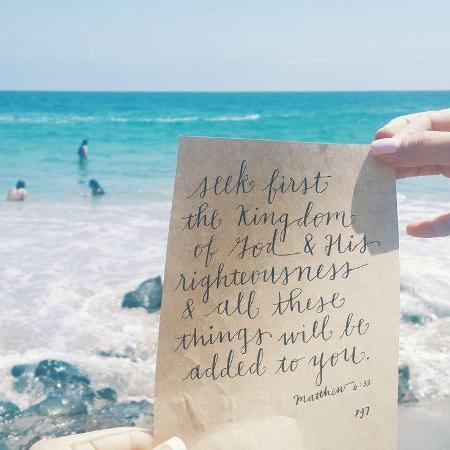 seek first
the Kingdom
of God & His
righteousness
& all these
things will be
added to you.
Matthew 6:33